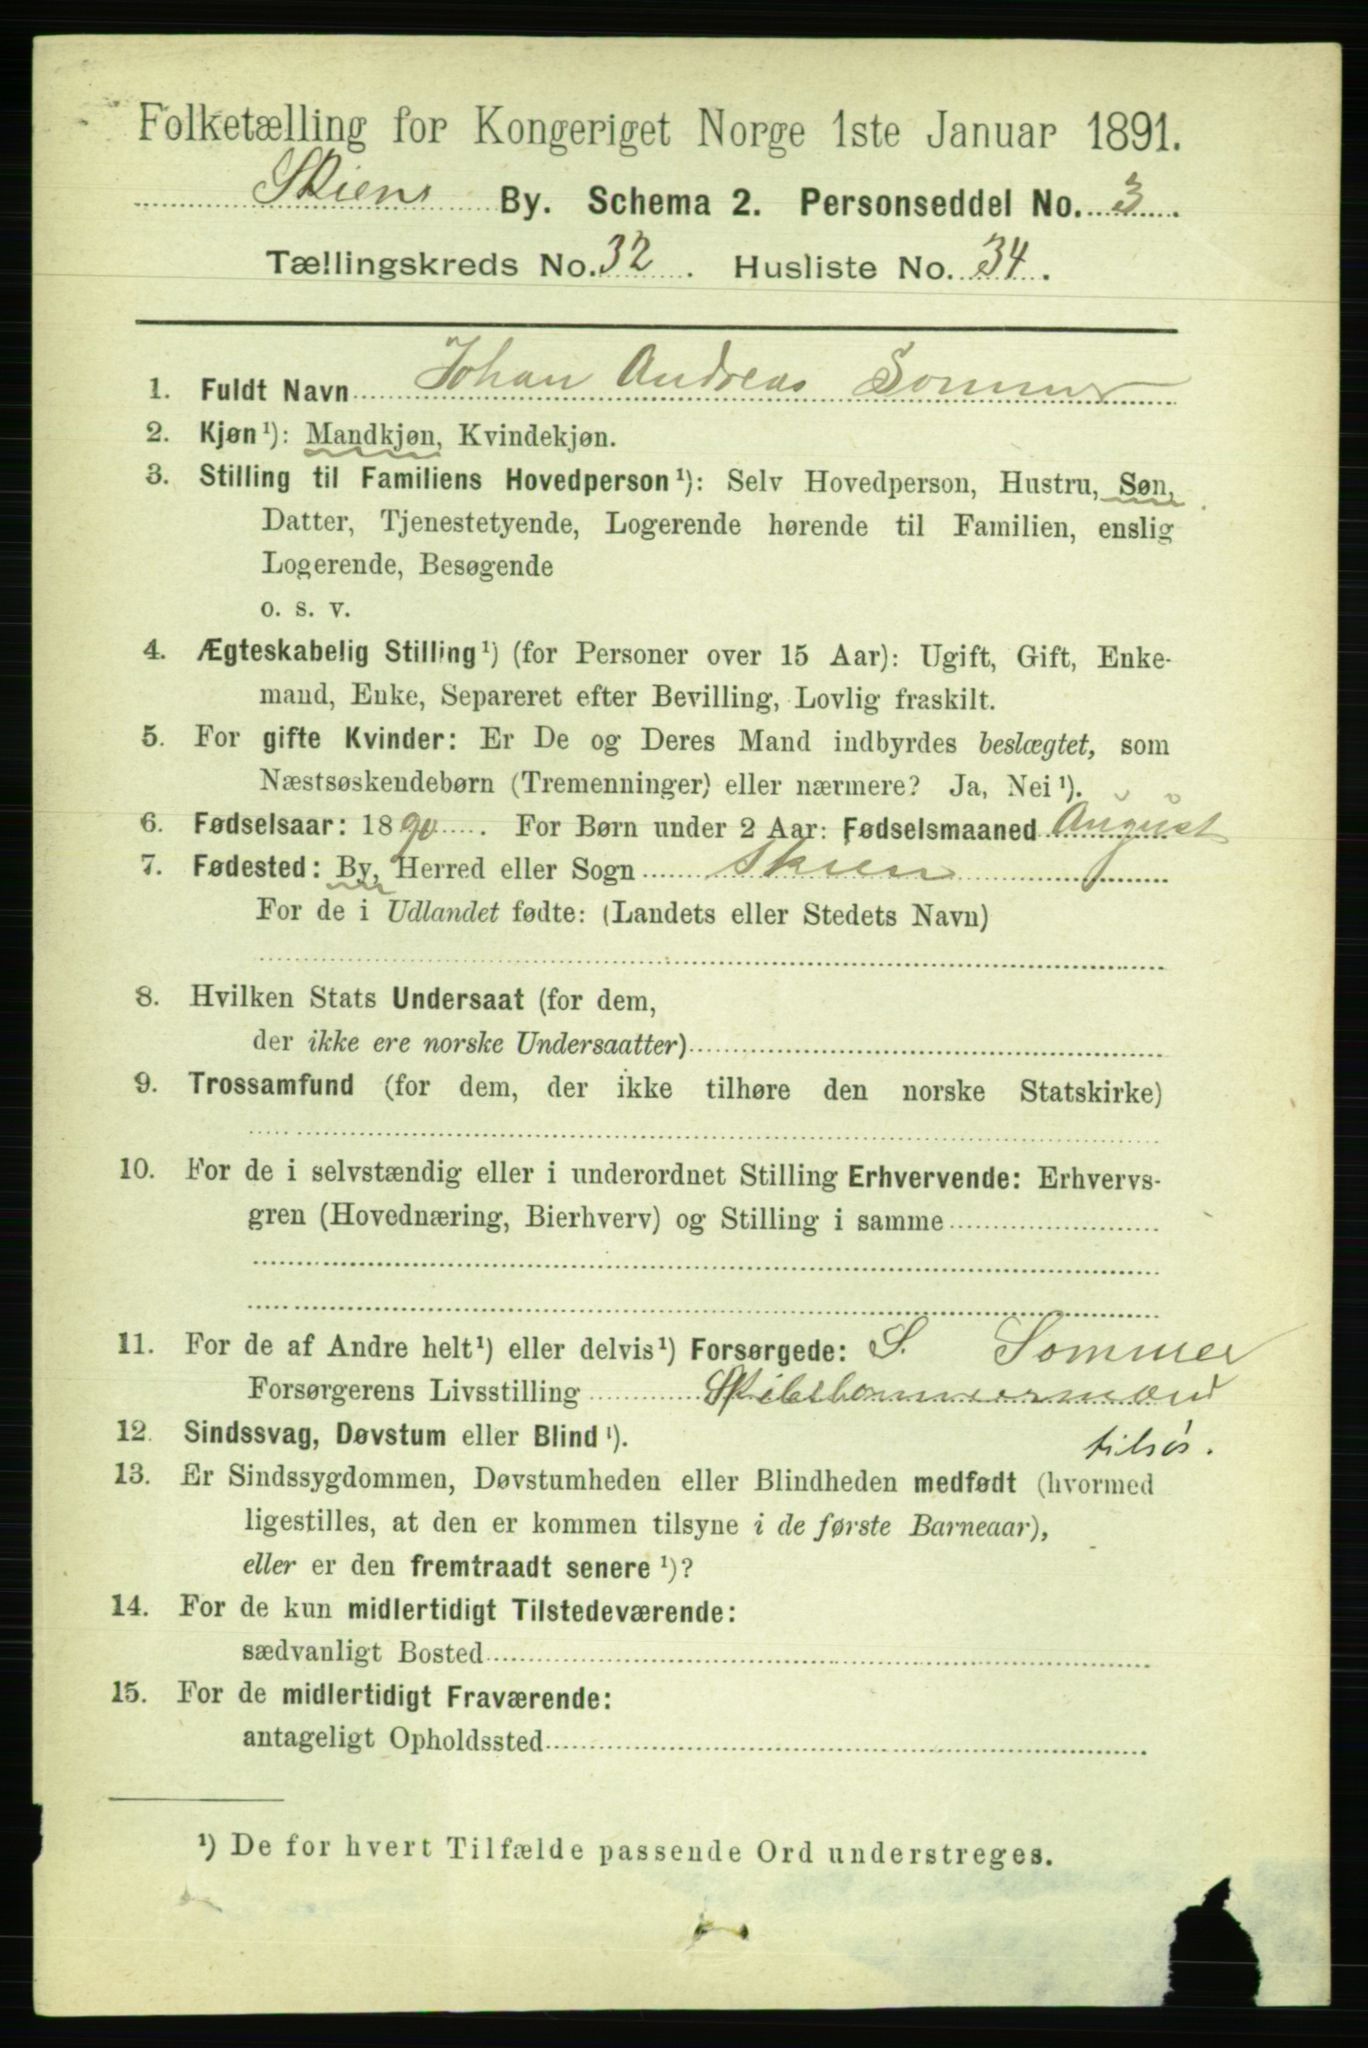 Folketælling for Kongeriget Norge 1ste Januar 1891.
Skiens By. Schema 2. Personseddel No. 3.
Tællingskreds No. 32. Husliste No. 34.
1. Fuldt Navn Johan Andreas Sommer
2. Kjøn¹): Mandkjøn, Kvindekjøn.
3. Stilling til Familiens Hovedperson¹): Selv Hovedperson, Hustru, Søn,
Datter, Tjenestetyende, Logerende hørende til Familien, enslig
Logerende, Besøgende
o. s. v.
4. Ægteskabelig Stilling¹) (for Personer over 15 Aar): Ugift, Gift, Enke-
mand, Enke, Separeret efter Bevilling, Lovlig fraskilt.
5. For gifte Kvinder: Er De og Deres Mand indbyrdes beslægtet, som
Næstsøskendebørn (Tremenninger) eller nærmere? Ja, Nei¹).
6. Fødselsaar: 1890. For Børn under 2 Aar: Fødselsmaaned August
7. Fødested: By, Herred eller Sogn Skien
For de i Udlandet fødte: (Landets eller Stedets Navn)
8. Hvilken Stats Undersaat (for dem,
der ikke ere norske Undersaatter)
9. Trossamfund (for dem, der ikke tilhøre den norske Statskirke)
10. For de i selvstændig eller i underordnet Stilling Erhvervende: Erhvervs-
gren (Hovednæring, Bierhverv) og Stilling i samme
11. For de af Andre helt¹) eller delvis¹) Forsørgede: S. Sommer
Forsørgerens Livsstilling Skibstømmermand
12. Sindssvag, Døvstum eller Blind¹). tilsøs.
13. Er Sindssygdommen, Døvstumheden eller Blindheden medfødt (hvormed
ligestilles, at den er kommen tilsyne i de første Barneaar),
eller er den fremtraadt senere¹)?
14. For de kun midlertidigt Tilstedeværende:
sædvanligt Bosted
15. For de midlertidigt Fraværende:
antageligt Opholdssted
¹) De for hvert Tilfælde passende Ord understreges.